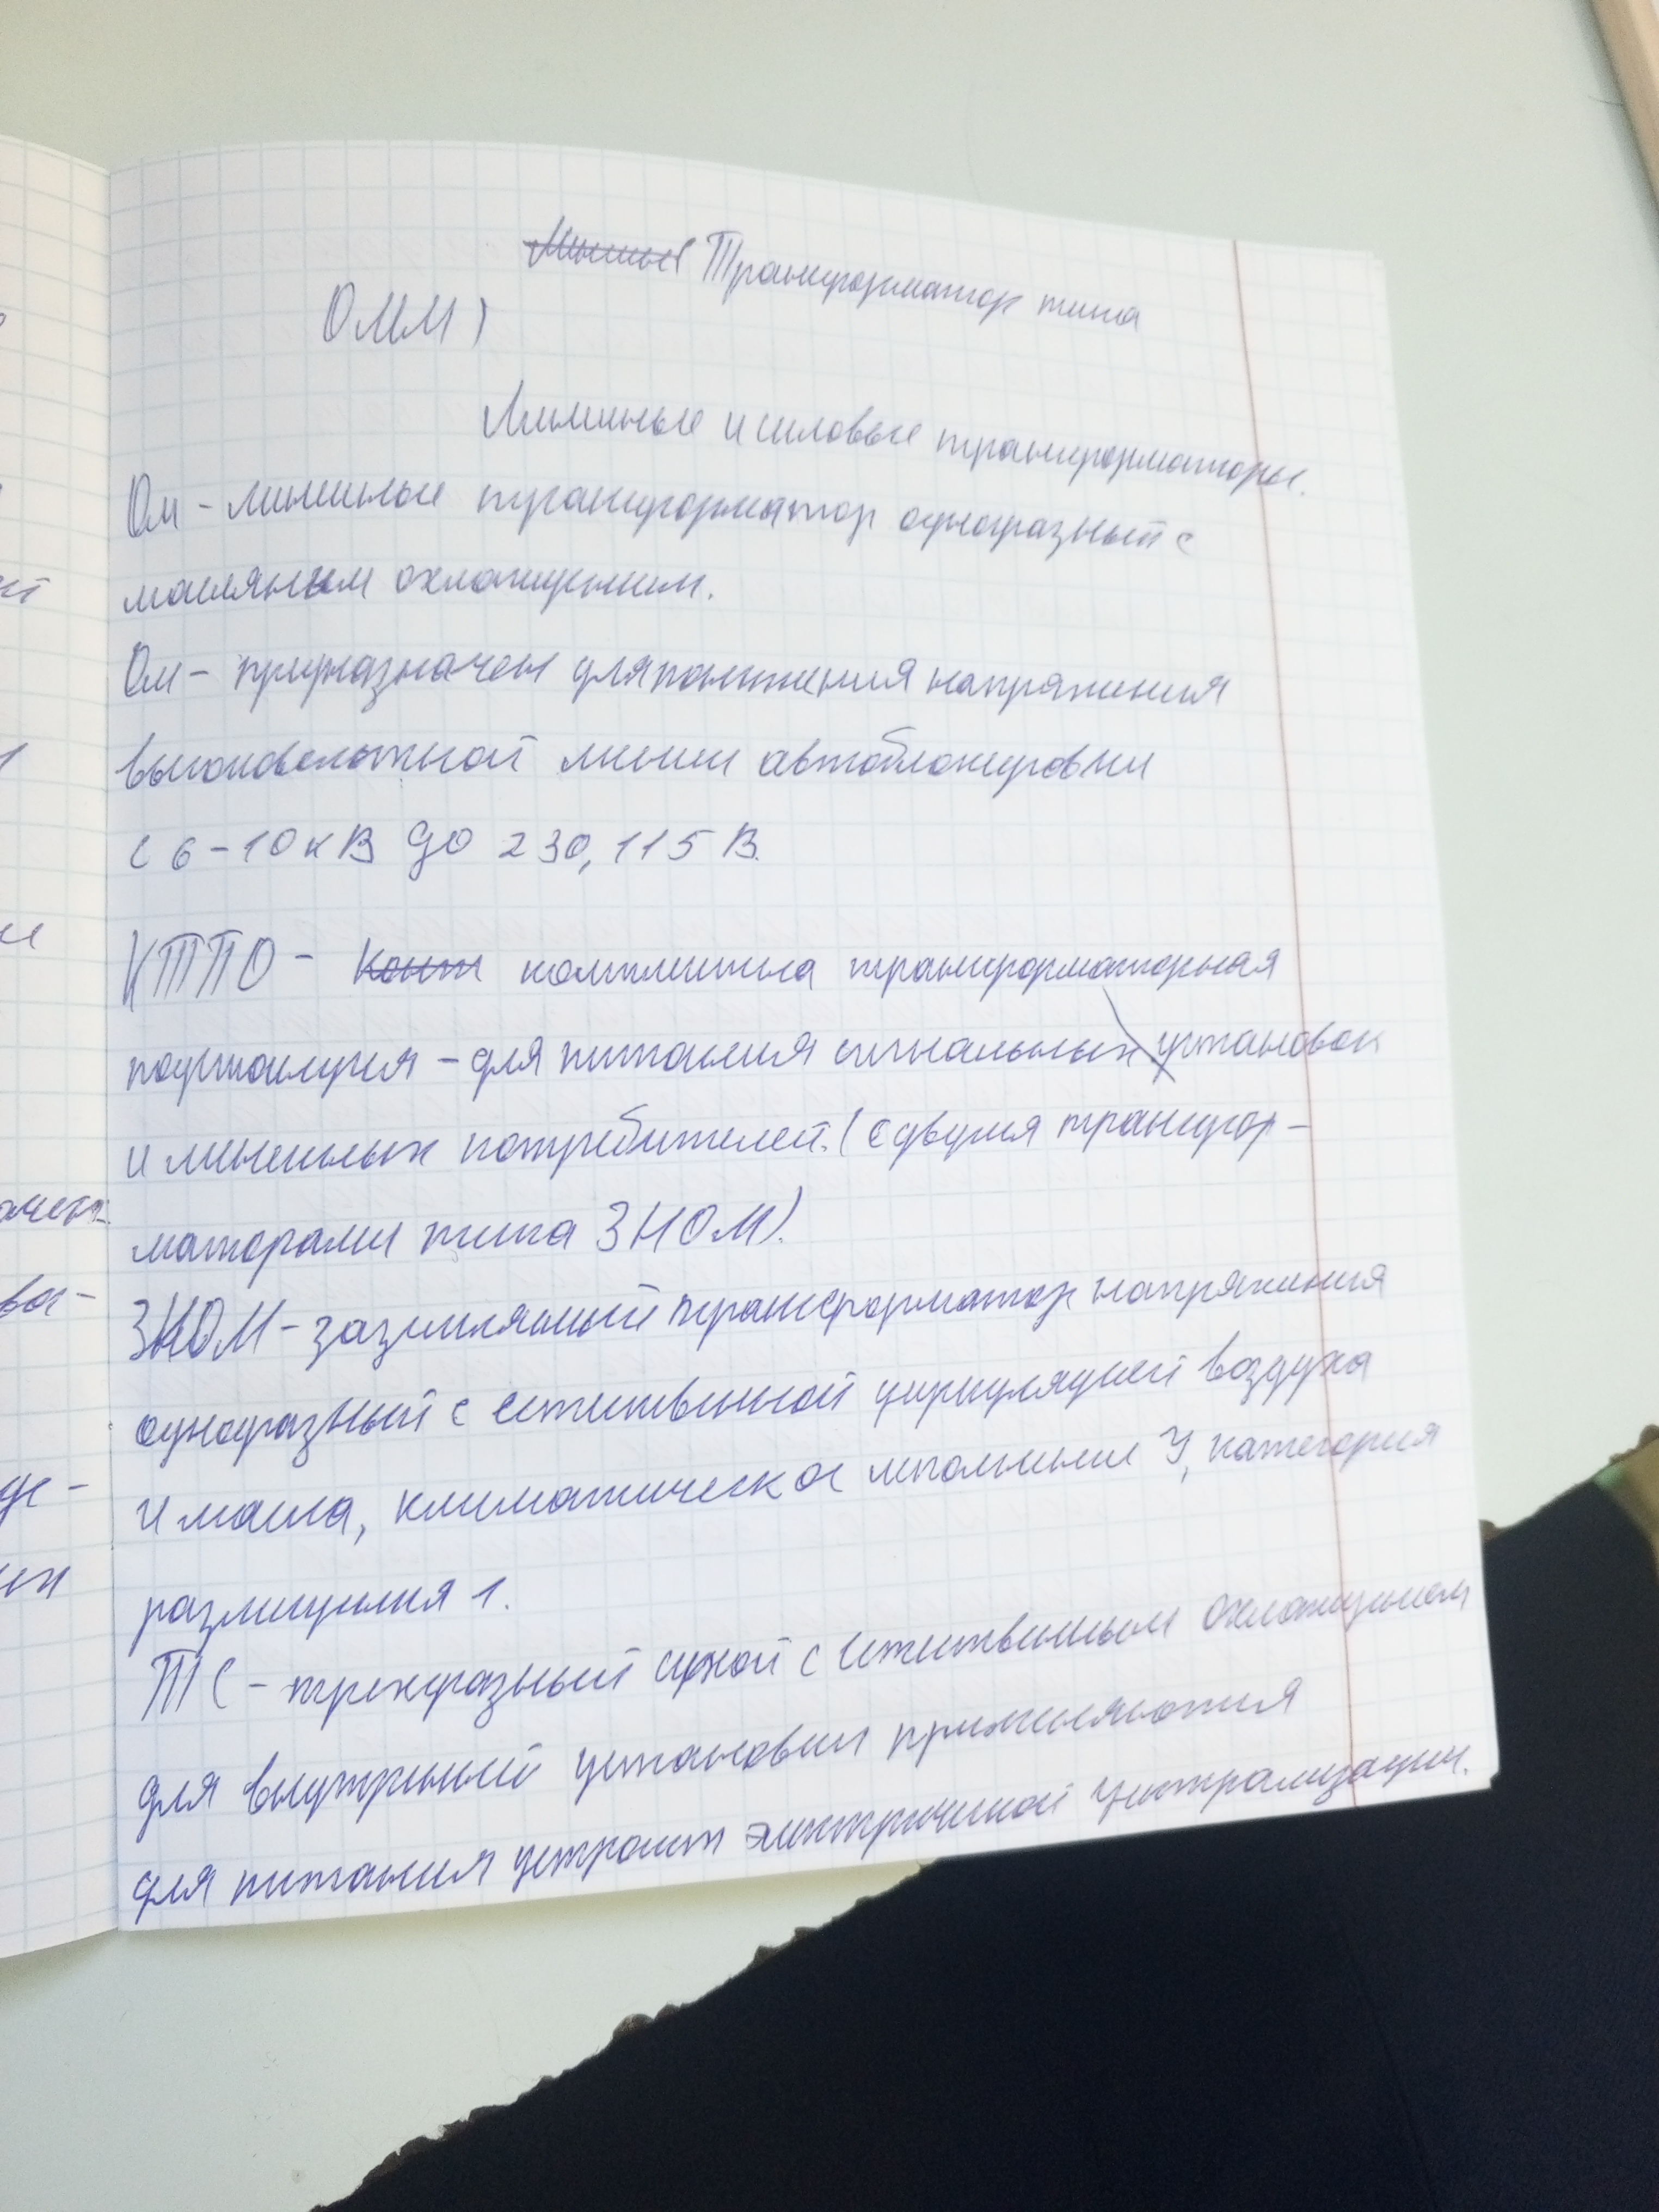 Трансформатор типа
ОММ)
Линейные и силовые трансформаторы.
Ом - линейные трансформатор однофазный с
масляным охлаждением.
Ом - предназначен для понижения напряжения
высоковольтной линии автоблокировки
с 6-10 кВ до 230, 115 В.
КТПО - комплектна трансформаторная
подстанция - для питания сигнальных установок
и линейных потребителей. (с двумя трансфор-
маторами типа ЗНОМ).
ЗНОМ - заземляемый трансформатор напряжения
однофазный с естественной циркуляцией воздуха
и масла, климатическое исполнение У, категория
размещения 1.
ТС - трехфазный сухой с естественным охлаждением
для внутренней установки применяются
для питания устройств электрической централизации.